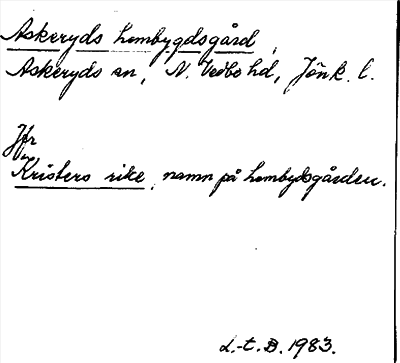 Askeryds hembygdsgård,
Askeryds sn, N. Vedbo hd, Jönk. l.
Jfr
Kristers rike, namn på hembygdsgården.
L.-t. B. 1983.